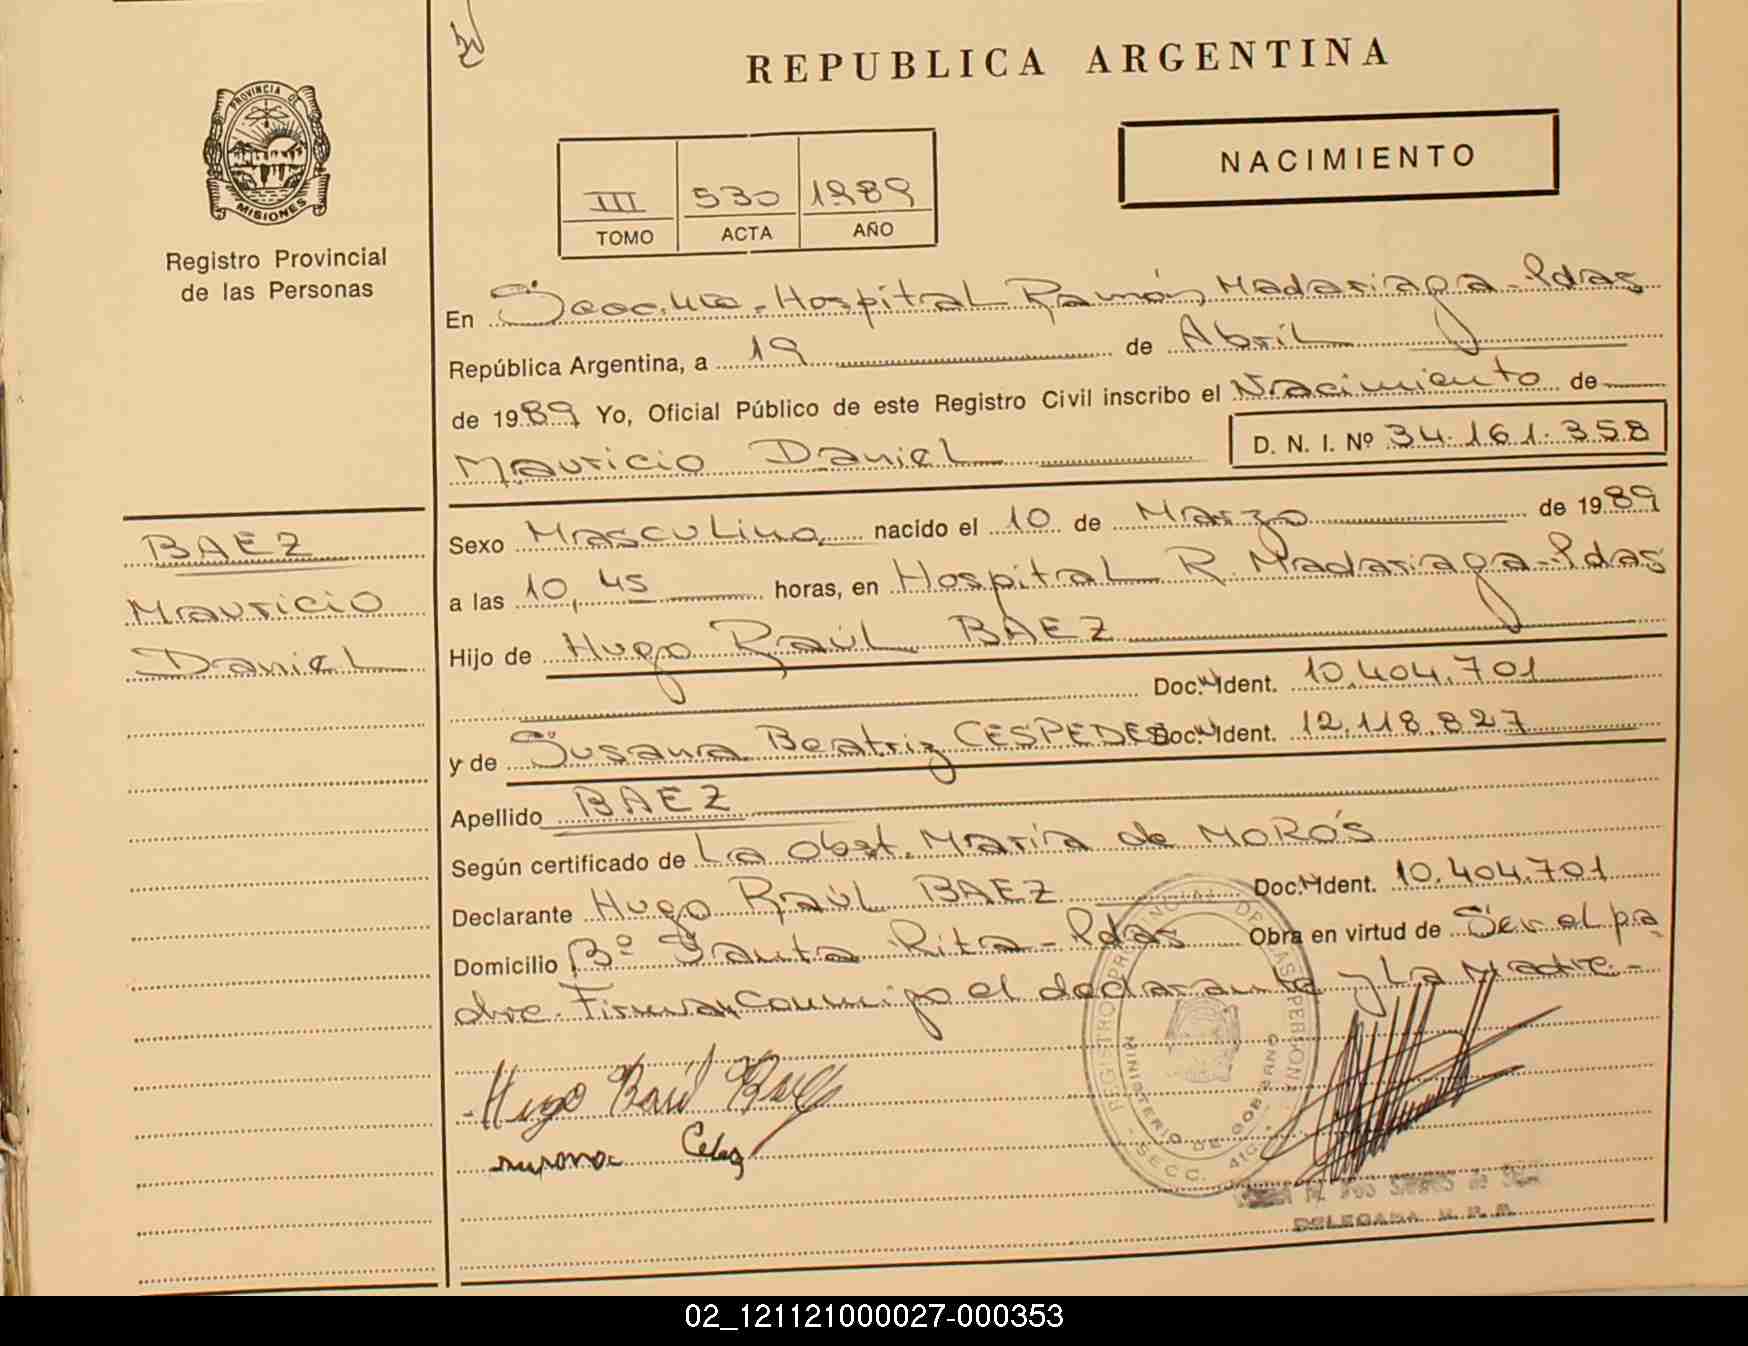 PROVINCIA DE
MISIONES
Registro Provincial
de las Personas
BAEZ
Mauricio
Daniel
REPUBLICA ARGENTINA
NACIMIENTO
III 530 1989
TOMO ACTA AÑO
En Hospital Ramón Madariaga - Pdas
República Argentina, a 19 de Abril
de 1989 Yo, Oficial Público de este Registro Civil inscribo el Nacimiento de
Mauricio Daniel D. N. I. Nº 34.161.358
Sexo Masculino nacido el 10 de Marzo de 1989
a las 10,45 horas, en Hospital R. Madariaga - Pdas
Hijo de Hugo Raúl BAEZ
Doc. Ident. 10.404.701
y de Susana Beatriz CESPEDES Doc. Ident. 12.118.827
Apellido BAEZ
Según certificado de La Obst. María de MOROS
Declarante Hugo Raúl BAEZ Doc. Ident. 10.404.701
Domicilio Bº Santa Rita - Pdas Obra en virtud de Ser el pa
dre. Firman conmigo el declarante y La Madre.-
Hugo Raúl Baez
REGISTRO PROVINCIAL DE LAS PERSONAS
MINISTERIO DE GOBIERNO
SECC.
DELEGADA R. P. P.
02_121121000027-000353